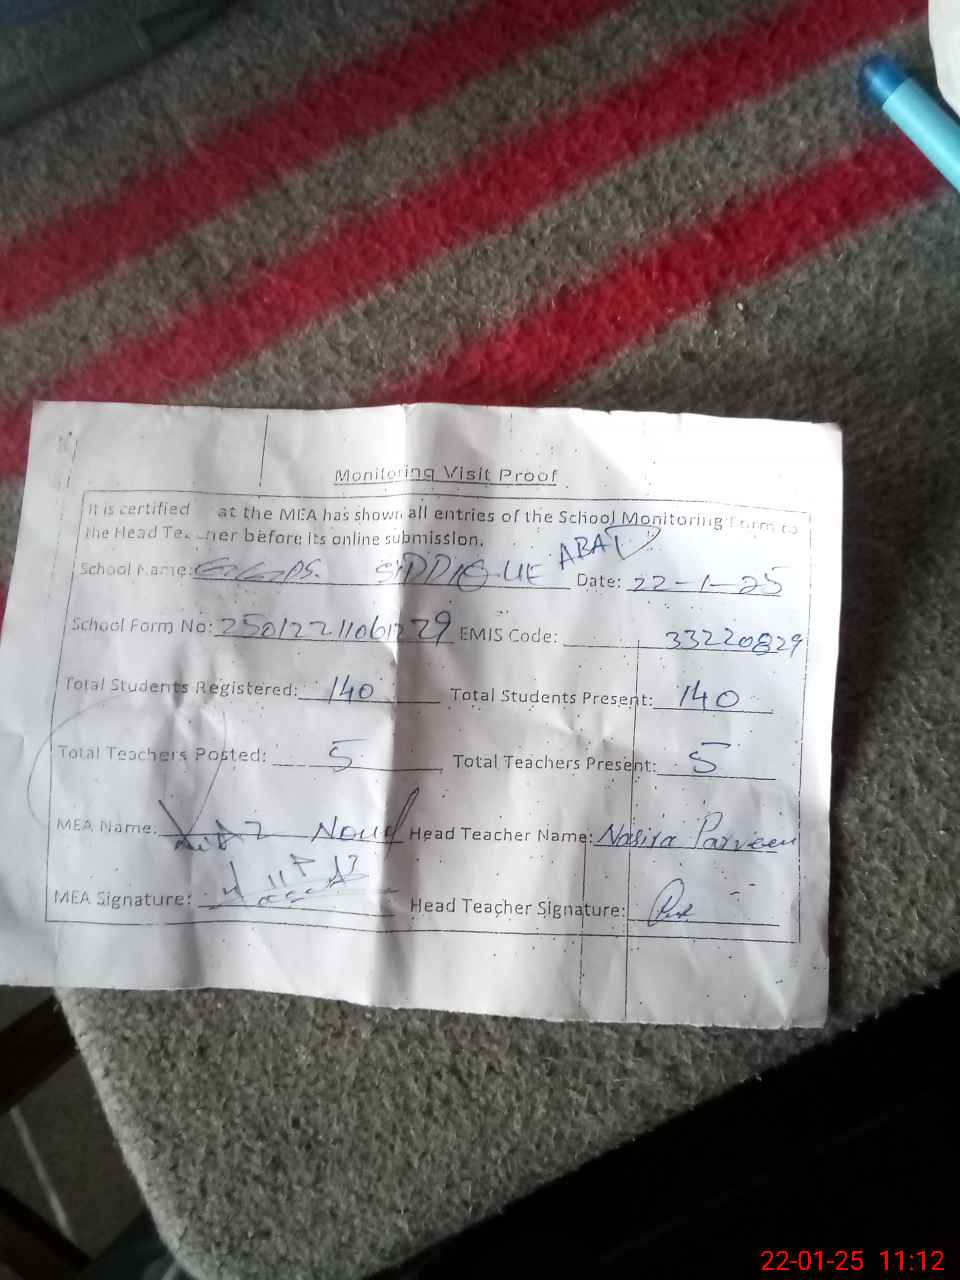 Monitoring Visit Proof
It is certified at the MEA has shown all entries of the School Monitoring Form to
the Head Teacher before its online submission.
School Name: GGPS. SIDDIQUE ABAD Date: 22-1-25
School Form No: 25012211061229 EMIS Code: 33220829
Total Students Registered: 140 Total Students Present: 140
Total Teachers Posted: 5 Total Teachers Present: 5
MEA Name: Head Teacher Name: Nasira Parveen
MEA Signature: Head Teacher Signature:
22-01-25 11:12